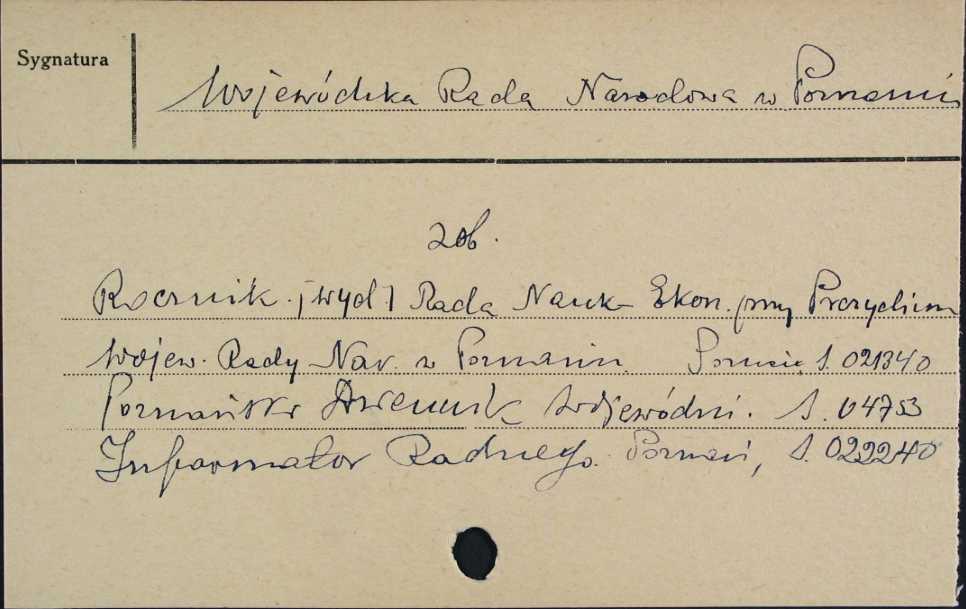 Sygnatura
Wojewódzka Rada Narodowa w Poznaniu
zob.
Rocznik. [wyd.] Rada Nauk Ekon. przy Prezydium
Wojew. Rady Nar. w Poznaniu. Poznań S. 021340
Poznański Dziennik Wojewódzki. S. 04753
Informator Radnego. Poznań, S. 022240